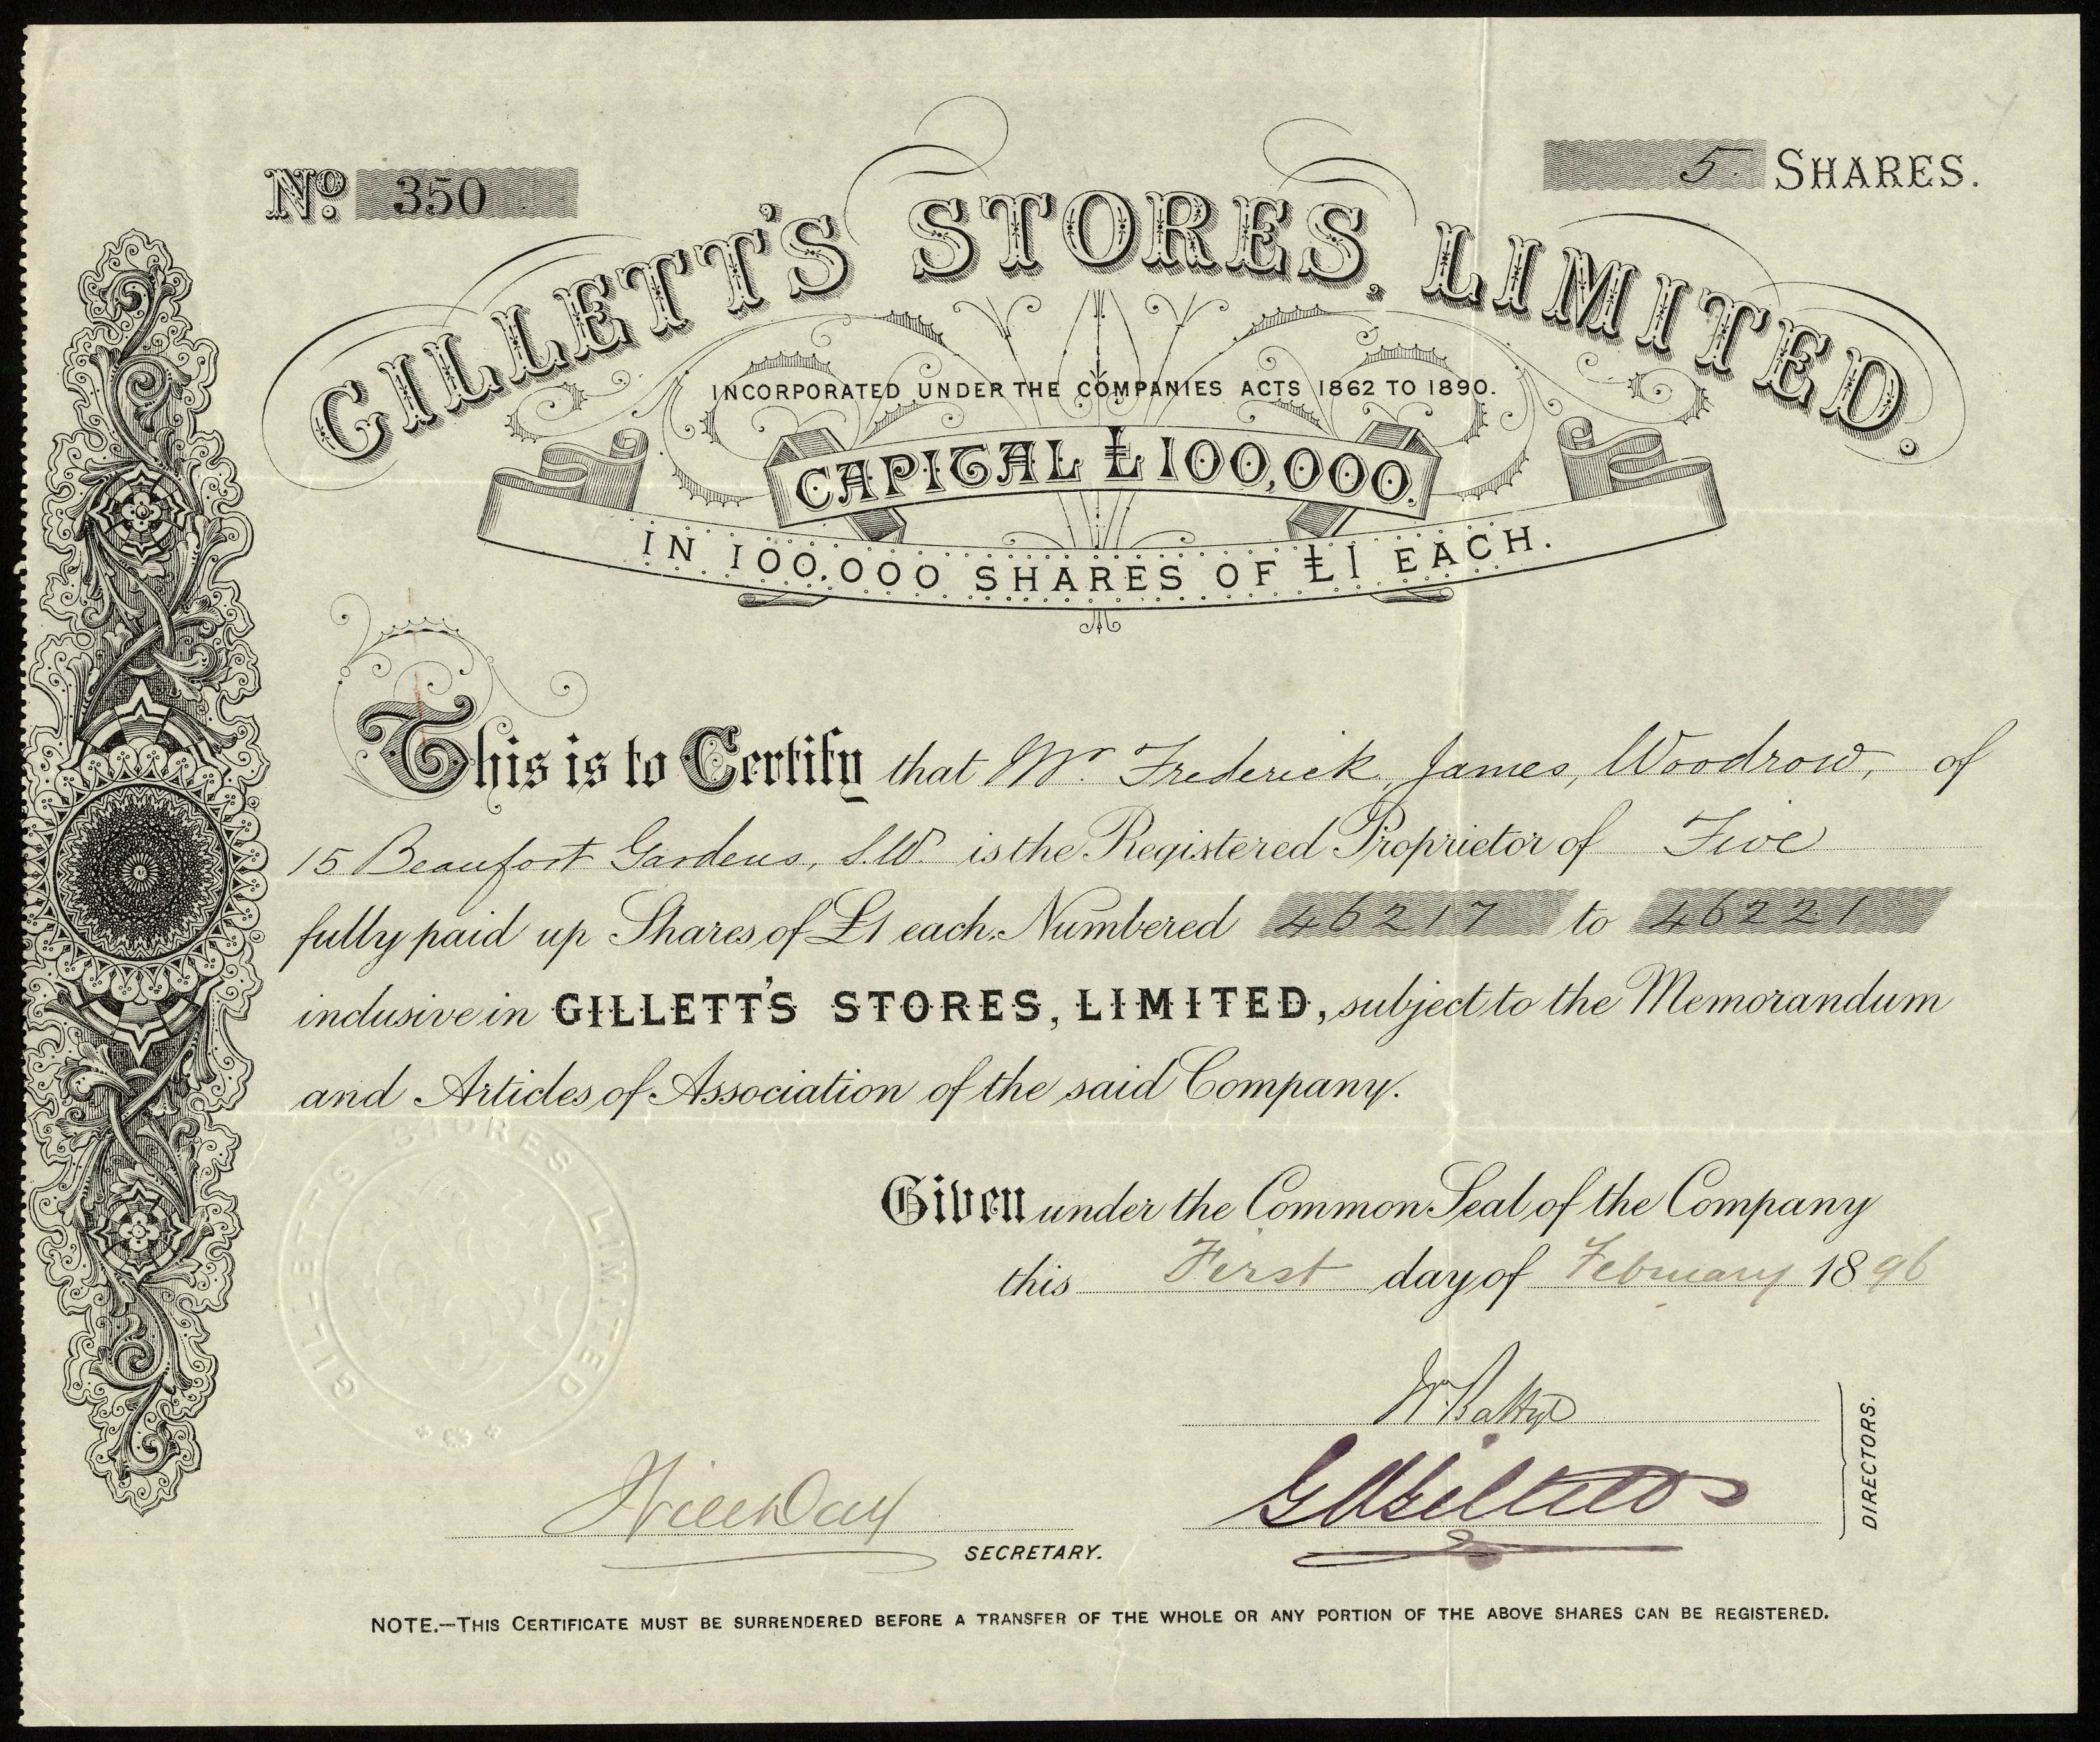 No. 350
5 SHARES.
GILLETT'S STORES, LIMITED.
INCORPORATED UNDER THE COMPANIES ACTS 1862 TO 1890.
CAPITAL £100,000.
IN 100,000 SHARES OF £1 EACH.
This is to Certify that Mr. Frederick James, Woodrow, of
15 Beaufort Gardens, S.W. is the Registered Proprietor of Five
fully paid up Shares of £1 each. Numbered 46217 to 46221
inclusive in GILLETT'S STORES, LIMITED, subject to the Memorandum
and Articles of Association of the said Company.
GILLETTS STORES LIMITED
Given under the Common Seal of the Company
this First day of February 1896
DIRECTORS.
SECRETARY.
NOTE.—THIS CERTIFICATE MUST BE SURRENDERED BEFORE A TRANSFER OF THE WHOLE OR ANY PORTION OF THE ABOVE SHARES CAN BE REGISTERED.